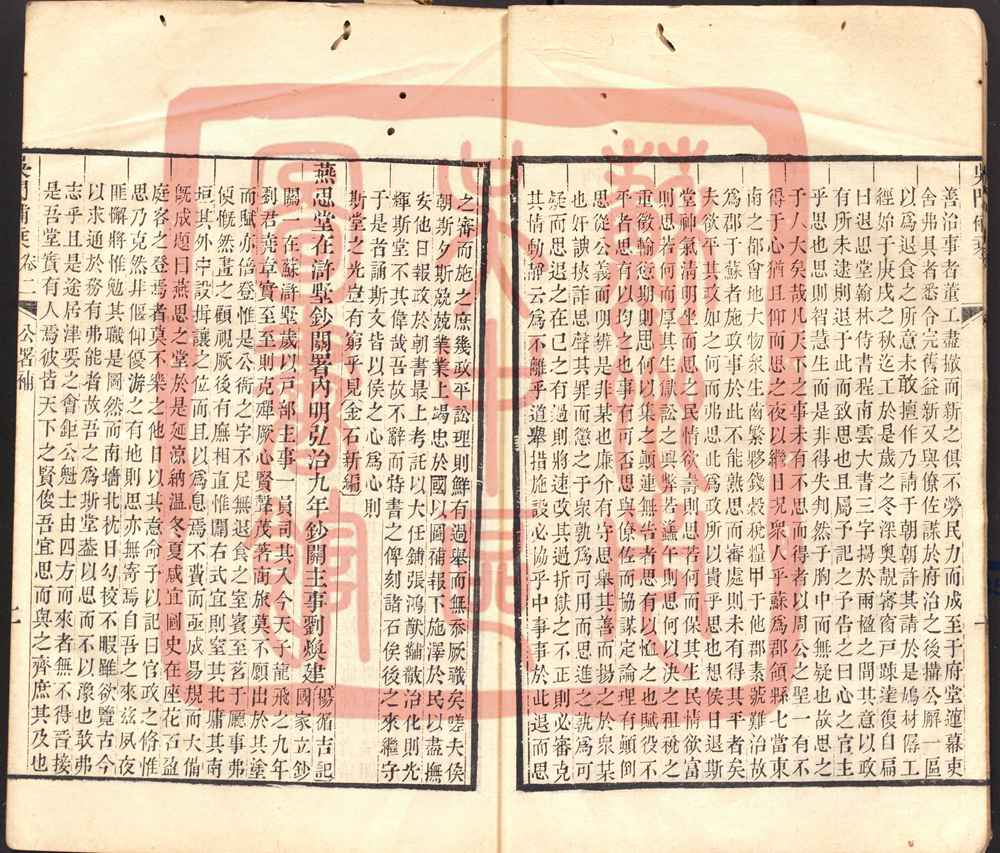 善治事者董工盡撤而新之俱不勞民力而成至于府堂運幕吏
舍弗具者悉令完舊益新又與僚佐謀於府治之後搆公廨一區
以爲退食之所意未敢擅作乃請于朝朝許其請於是鳩材僝工
經始于庚戌之秋迄工於是歲之冬深奥靚審窗戸踈達復白扁
曰退思堂翰林侍書程南雲大書三字揚於兩楹之間其意以政
有所未逮則退于此而致思也且屬予記之予告之曰心之官主
乎思也思則智慧生而是非得失判然于胸中而無疑也故思之
于人大矣哉凡天下之事未有不思而得者以周公之聖一有不
得于心猶且仰而思之夜以繼日况衆人乎蘇爲郡領縣七當東
南之都會地大物衆生齒繁夥錢穀稅糧甲于他郡素號難治故
爲郡于蘇者施政事於此不能熟思而審處則未有得其平者矣
夫欲平其政如之何而弗思此爲政所以貴乎思也想侯日退斯
堂神氣清明坐而思之民情欲壽則思若何而保其生民情欲富
則思若何而厚其生獄訟之興弊若蠭午則思何以決之租稅之
重徵輸愆期則思何以集之顛連無告者思有以恤之也賦役不
平者思有以均之也事有可否思與僚佐而協謀定論理有顛倒
思從公義而明辨是非某也廉介有守思舉其善而揚之於衆某
也奸諛挾詐思聲其罪而懲之于衆孰爲可用而思進之孰爲可
疑而思退之在己之有過則思將速改其過折獄之不正則必審克
其情動靜云爲不離乎道舉措施設必協乎中事事於此退而思
之審而施之庶幾政平訟理則鮮有過舉而無忝厥職矣嗟夫侯
朝斯夕斯兢兢業業上竭忠於國以圖補報下施澤於民以盡撫
安他日報政於朝書最上考託以大任鋪張鴻猷黼黻治化則光
輝斯堂不其偉哉吾故不辭而特書之俾刻諸石俟後之來繼守
于是者誦斯文皆以侯之心爲心則
斯堂之光豈有窮乎見金石新編
燕思堂在滸墅鈔關署内明弘治九年鈔關主事劉煥建楊循吉記國家立鈔
關一在蘇滸墅歲以戸部主事一員司其入今天子龍飛之九年
劉君堯章實至至則克殫厥心賢聲茂著商旅莫不願出於其塗
而賦亦倍羨顧於公衙之字不足無退食之室賓至茗于廳事弗
偵慨然畫之顧視厥後有廡相直惟闢右式宜則窒其北墉其南
垣其外中設揖讓之位而且以爲息焉不費而亟成易規而大備
旣成題曰燕思之堂於是延涼納温冬夏咸宜圖史在座花石盈
庭客之登焉者莫不樂之他日以其意命予以記曰官政之俗惟
思乃克然非偃仰優游之有地則思亦無寄焉自吾之來兹夙夜
匪懈將惟勉其職是圖然而南墻北枕日勾校不暇雖欲覽古今
以求通於務有弗能者故吾之爲斯堂葢以思而不以豫也敢弗
志乎且是途居津要之會鉅公魁士由四方而來者無不得晉接
是吾堂實有人焉彼皆天下之賢俊吾宜思而與之齊庶其及也
卷二
公署補